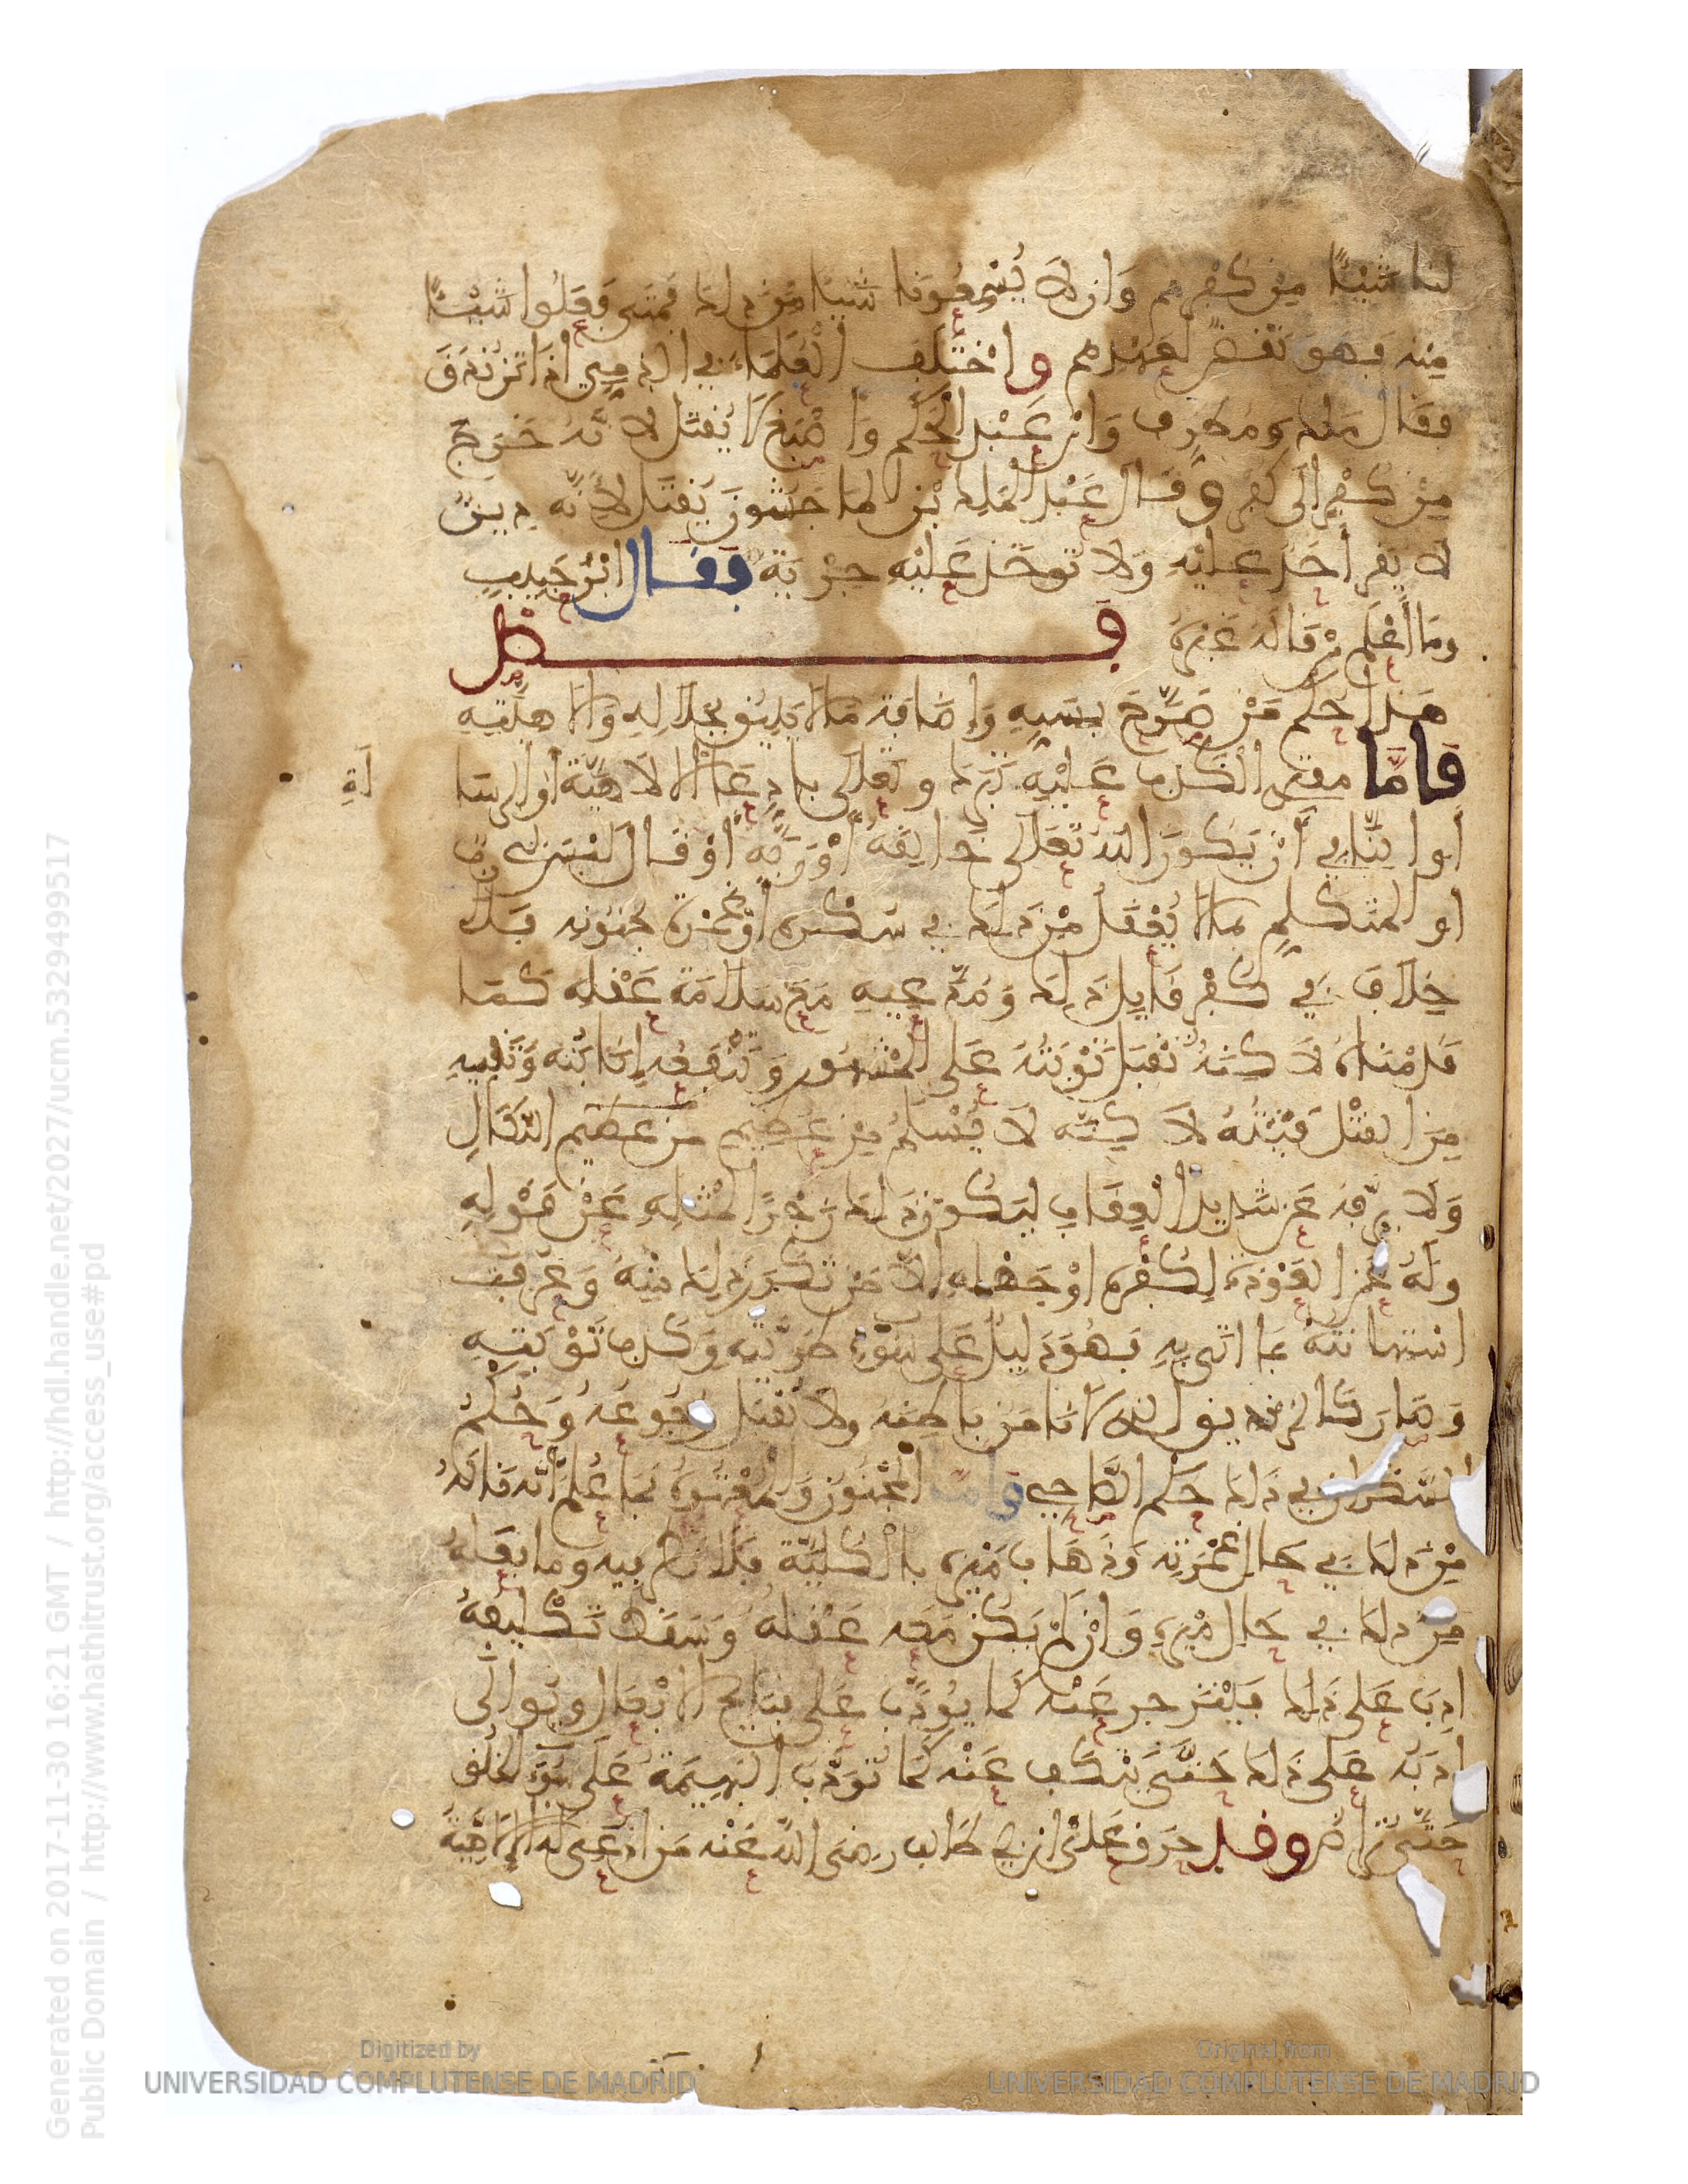 لنا شَيْئًا مِنْ كُفْرِهِم وَانْ لَا يُسْمِعُونَا شَيْئًا مِنْ ذلك فَمَتَى فَعَلُوا شَيْئًا
مِنه فهو نَقْضٌ لعَهْدِهم واخْتَلَف العُلَمَاءُ في الذِمِيِّ اذَا تزنْدَقَ
فقال مَلك ومُطرِف وَابْن عَبْد الحَكَم وَاصْبَغ لَا يُقتَل لانَّه خَرج
مِنْ كُفْرٍ الَى كُفرٍ وقال عَبْد الملِك بْن الماجشون يُقتَل لأنَّه دِينٌ
لَا يقر أحَد عَليْه وَلَا توخَذ عَليْه جِزْيَة فقال ابْن حَبِيبٍ
ومَا أَعْلَم مَنْ قالَهُ غَيْره فصل
هَذا حُكم مَنْ صَرَّحَ بسَبِّهِ وَإِضَافَة مَا لا يَلِيقُ بجَلالِهِ وَالاهِيَّتِهِ
فَامَّا مفتري الكَذِب عَليْهِ تبَرك وتعلى بادِعَاء الالَاهِيَّة أوالرسا
لَةِ
أوا لنَّافِي أَنْ يَكُونَ الله تعَلَى خَالِقَهُ أوْ رَبَّهُ أوْ قال ليْسَ لي رَبٌّ
او المتَكلِمِ بمَا لا يُعْقَلُ مِنْ ذَلك في سُكْرِه أوْ غَمْرَةِ جُنُونِه فَلا
خِلَافَ في كُفْرِ قَايِلِ ذَلِك وَمُدَّعِيهِ مَعَ سَلامَة عَقْلِه كَمَا
قَدمْنَاهُ لَاكِنَّهُ تُقْبَل تَوْبَتُهُ عَلى المشْهُور وَتَنْفَعُه إنَابَتُه وَتُنجِيهِ
مِنَ القتْل فَيْئَتُهُ لَاكِنَّه لَا يَسْلَمُ مِنْ عَظِيمِ مِنْ عَظِيم النَّكَالِ
وَلَا يُرَفَّه عَن شَدِيدِ الْعِقَابِ ليَكُونَ ذَلِك زَجْرًا لمثْلِهِ عَنْ قَوْلِهِ
وَلَهُ عَن العَوْدَة لكُفْرِه اوْ جَهْلِهِ إلَّا مَنْ تَكَرَّرَ ذَلِك مِنْهُ وَعُرِف
استهانتهُ بمَا اتَى بِهِ فهُوَ دَلِيلٌ عَلى سُوءِ طَوِيَّتِه وَكَذِب تَوْبَتِهِ
وَصَارَ كَالزنديق الذي لا نَامَن بَاطِنَه ولا نقْبَل رُجُوعَهُ وَحُكْمُ
السَّكران في ذَلك حُكم الصَّاحِي وأمَّا المجْنُون وَالمعْتُوه فمَا عُلمَ أنَّه قَالَهُ
مِنْ ذلك في حَالِ غَمْرَتِه وَذهَابِ مَيْزِه بالْكُليَّة فلا نظر فيه وما فعَلهُ
مِن ذلك في حَال مَيْزِهِ وَانْ لمْ يَكُن مَعَه عَقْلهُ وَسَقَطَ تَكْليفهُ
ادِبَ عَلى ذلك ليَنْزَجر عَنْه كما يُودَّب عَلى قبَايِح الافعَال ويُوالَى
أدَبُه عَلى ذَلك حَتَّى يَنْكف عَنْه كَمَا تُوَدَّب البَهِيمَة عَلَى سُوءِ الخُلُق
حَتَّى تُرَاض وقد حَرق عَلى ابن ابي طَالب رضي الله عَنْه مَن ادعى له الالَاهِيَّة